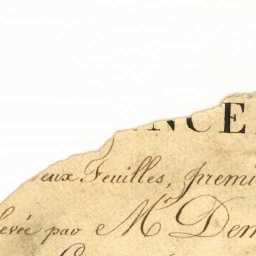 NCE
eux Feuilles, premi
levée par Mr Dem